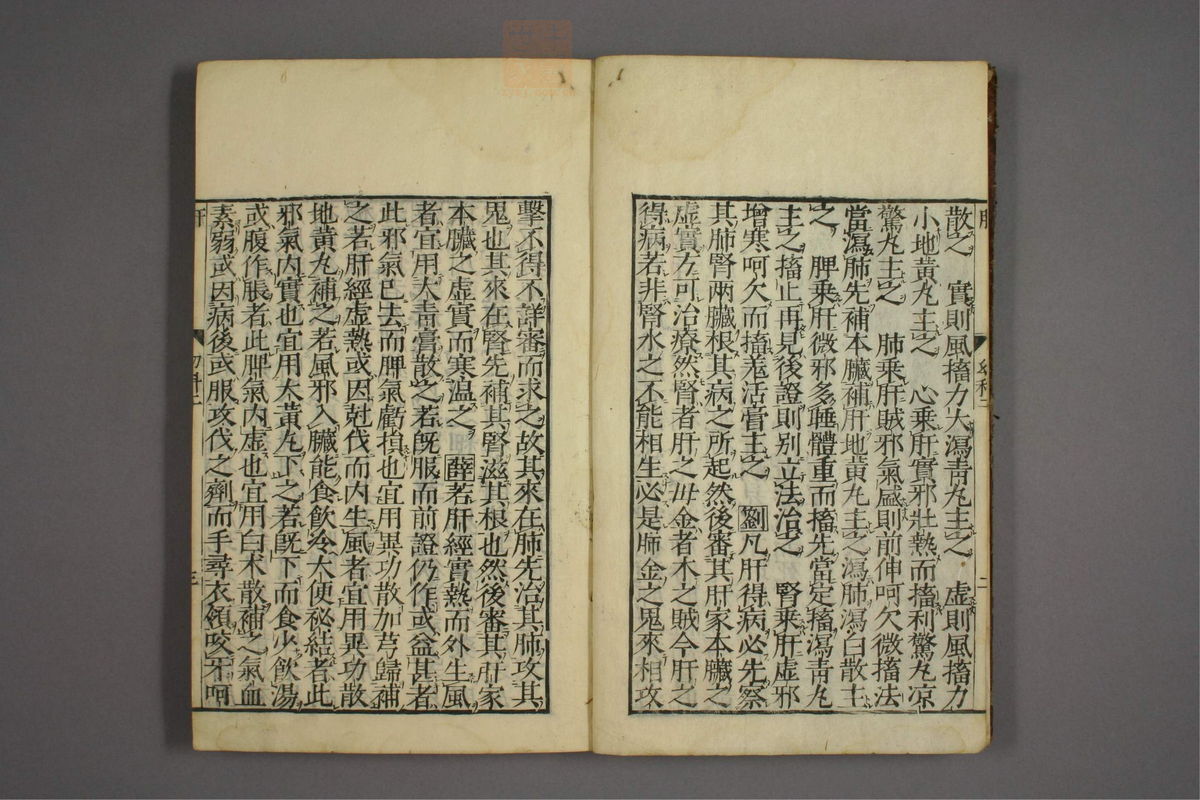 散之　實則風搐力大瀉青丸主之　虚則風搐力
小地黄丸主之　心乗肝實邪壮熱而搐利驚丸凉
驚丸主之　肺乗肝賊邪氣盛則前伸呵欠微搐法
當瀉肺先補本臟補肝地黄丸主之瀉肺瀉白散主
之　脾乗肝微邪多唾體重而搐先當定搐瀉青丸
主之搐止再見後證則别立法治之　腎乗肝虚邪
增寒呵欠而搐羗活膏主之　劉凡肝得病必先察
其肺腎兩臟根其病之所起然後審其肝家本臟之
虚實方可治療然腎者肝之母金者木之賊今肝之
得病若非腎水之不能相生必是肺金之鬼來相攻
肝　幼科二　二
擊不得不詳審而求之故其來在肺先治其肺攻其
鬼也其來在腎先補其腎滋其根也然後審其肝家
本臟之虚實而寒温之　薛若肝經實熱而外生風
者宜用大青膏散之若旣服而前證仍作或益甚者
此邪氣已去而脾氣虧損也宜用異功散加芎歸補
之若肝經虚熱或因尅伐而内生風者宜用異功散
地黄丸補之若風邪入臟能食飲冷大便秘結者此
邪氣内實也宜用大黄丸下之若旣下而食少飲湯
或腹作脹者此脾氣内虚也宜用白术散補之氣血
素弱或因病後或服攻伐之劑而手尋衣領咬牙呵
肝　三